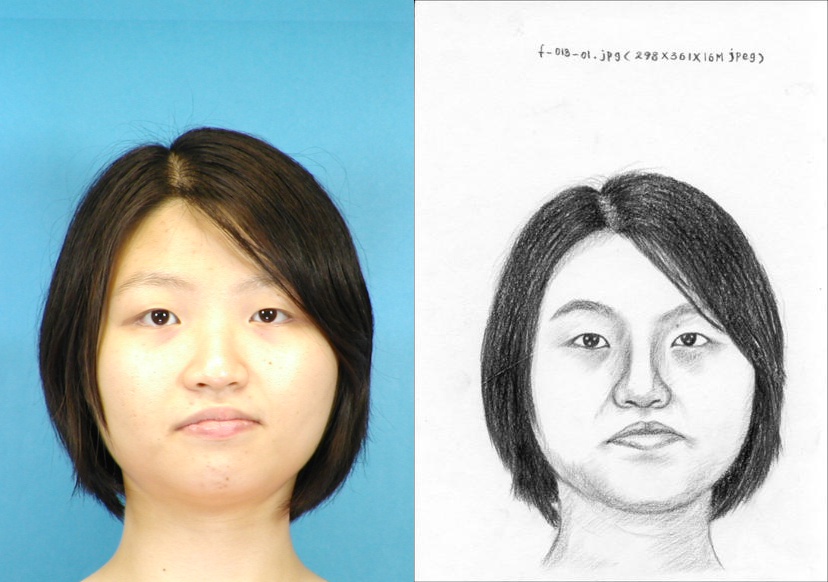 f-013-01.jpg(298X361X16M jpeg)